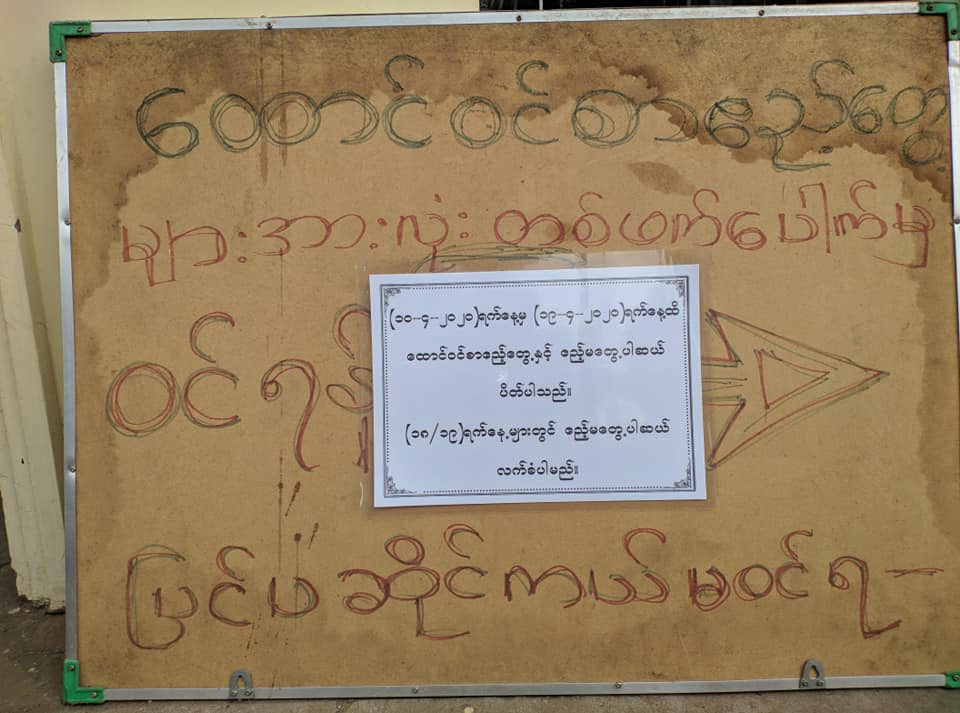 ထောင်ဝင်စာဧည့်တွေ့
များအားလုံး တစ်ဖက်ပေါက်မှ
ဝင်ရန်
(၁၀-၄-၂၀၂၁)ရက်နေ့မှ (၁၉-၄-၂၀၂၁)ရက်နေ့ထိ
ထောင်ဝင်စာဧည့်တွေ့နှင့် ဧည့်မတွေ့ပါဆယ်
ပိတ်ပါသည်။
(၁၈/၁၉)ရက်နေ့များတွင် ဧည့်မတွေ့ပါဆယ်
လက်ခံပါမည်။
ပြင်ပ ဆိုင်ကယ် မဝင်ရ -